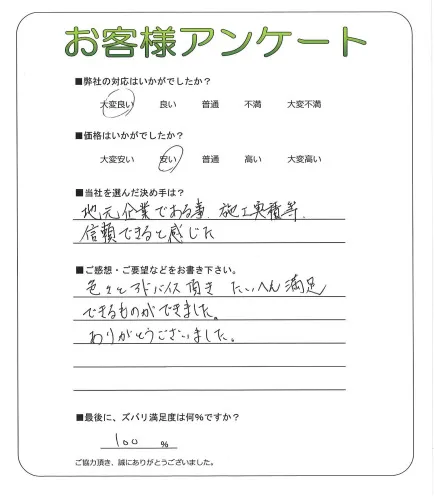 お客様アンケート
■弊社の対応はいかがでしたか？
大変良い 良い 普通 不満 大変不満
■価格はいかがでしたか？
大変安い 安い 普通 高い 大変高い
■当社を選んだ決め手は？
地元企業である事、施工実積等、
信頼できると感じた
■ご感想・ご要望などをお書き下さい。
色々とアドバイス頂き たいへん満足
できるものができました。
ありがとうございました。
■最後に、ズバリ満足度は何%ですか？
100 %
ご協力頂き、誠にありがとうございました。